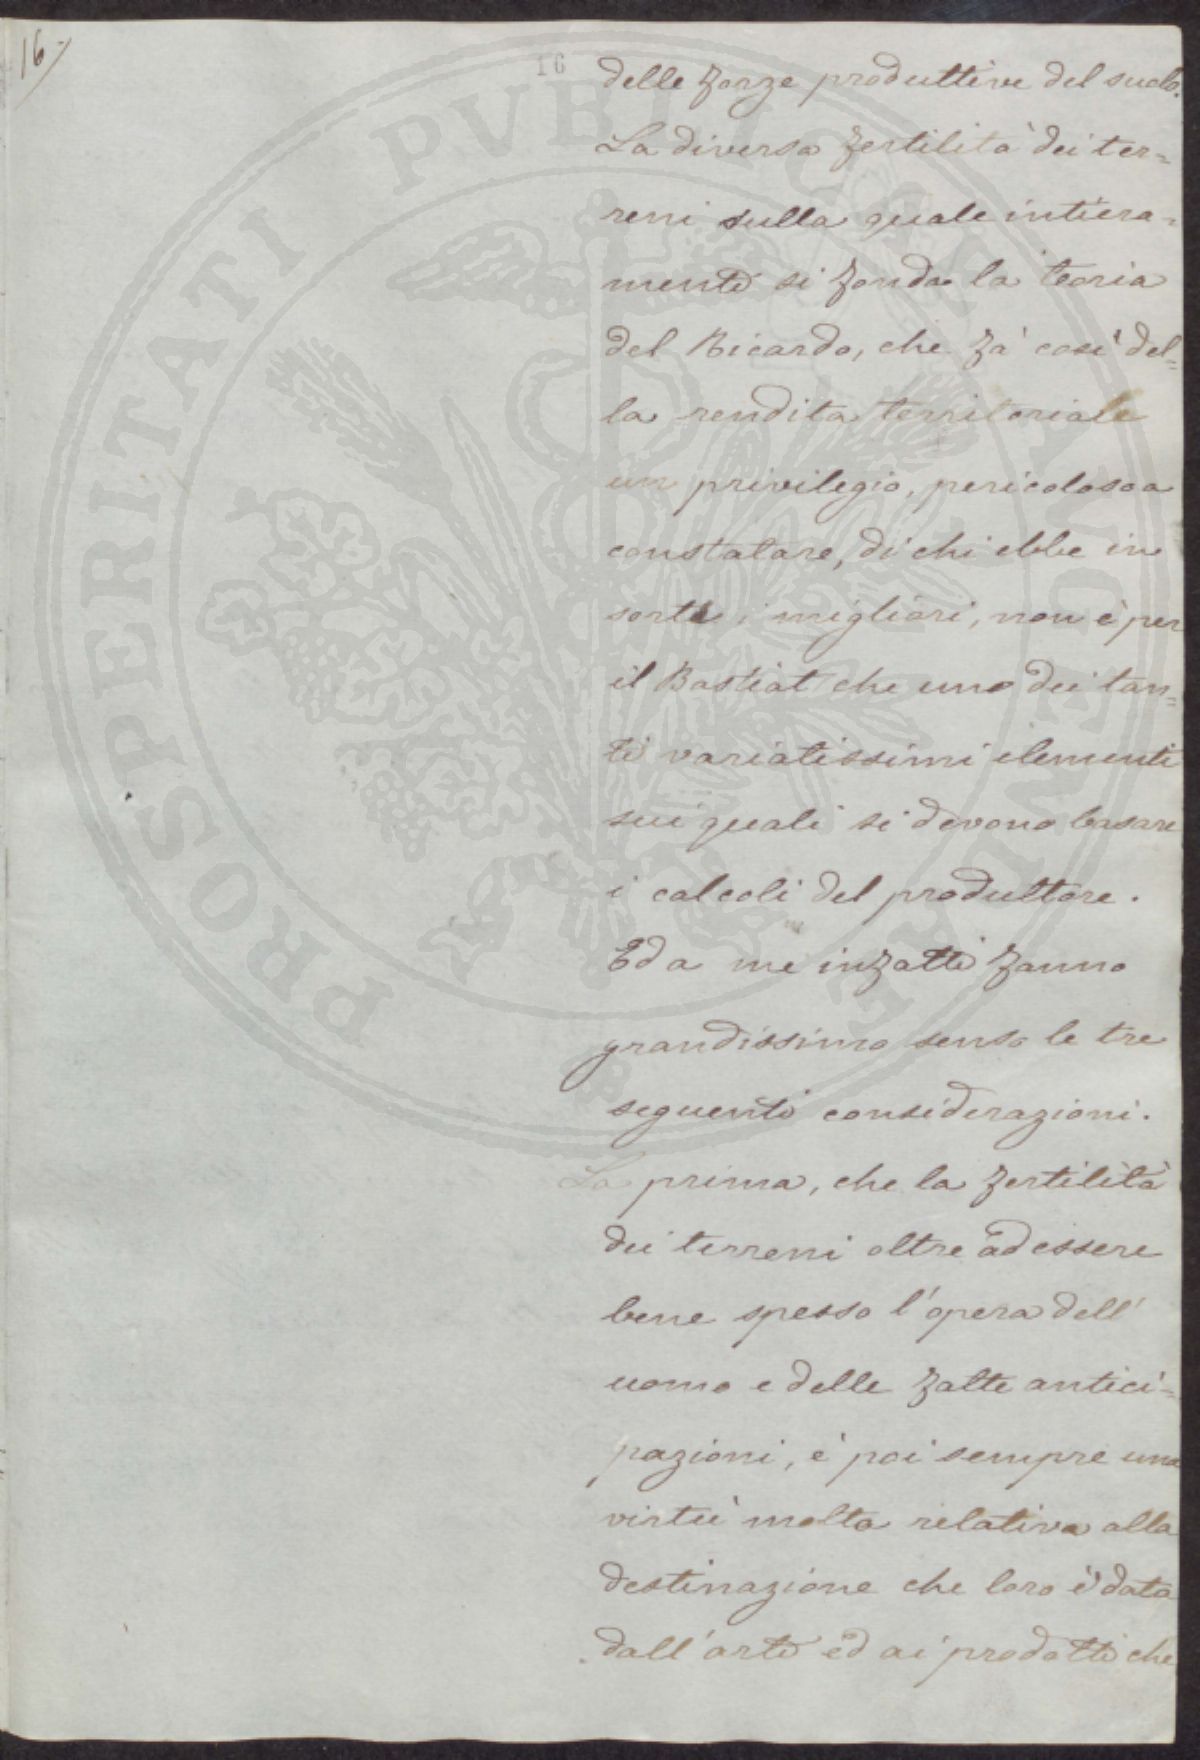 16-/
16
delle forze produttive del suolo.
La diversa fertilità dei ter=
reni sulla quale intiera=
mente si fonda la teoria
del Ricardo, che fà così del=
la rendita territoriale
un privilegio, pericoloso a
constatare, di chi ebbe in
sorte i migliori, non è per
il Bastiat che uno dei tan=
ti variatissimi elementi
sui quali si devono basare
i calcoli del produttore.
Ed a me infatti fanno
grandissimo senso le tre
seguenti considerazioni.
La prima, che la fertilità
dei terreni oltre ad essere
bene spesso l'opera dell'
uomo e delle fatte antici=
pazioni, è poi sempre una
virtù molto relativa alla
destinazione che loro è data
dall'arte ed ai prodotti che
PROSPERITATI PVBLICAE AVGENDAE